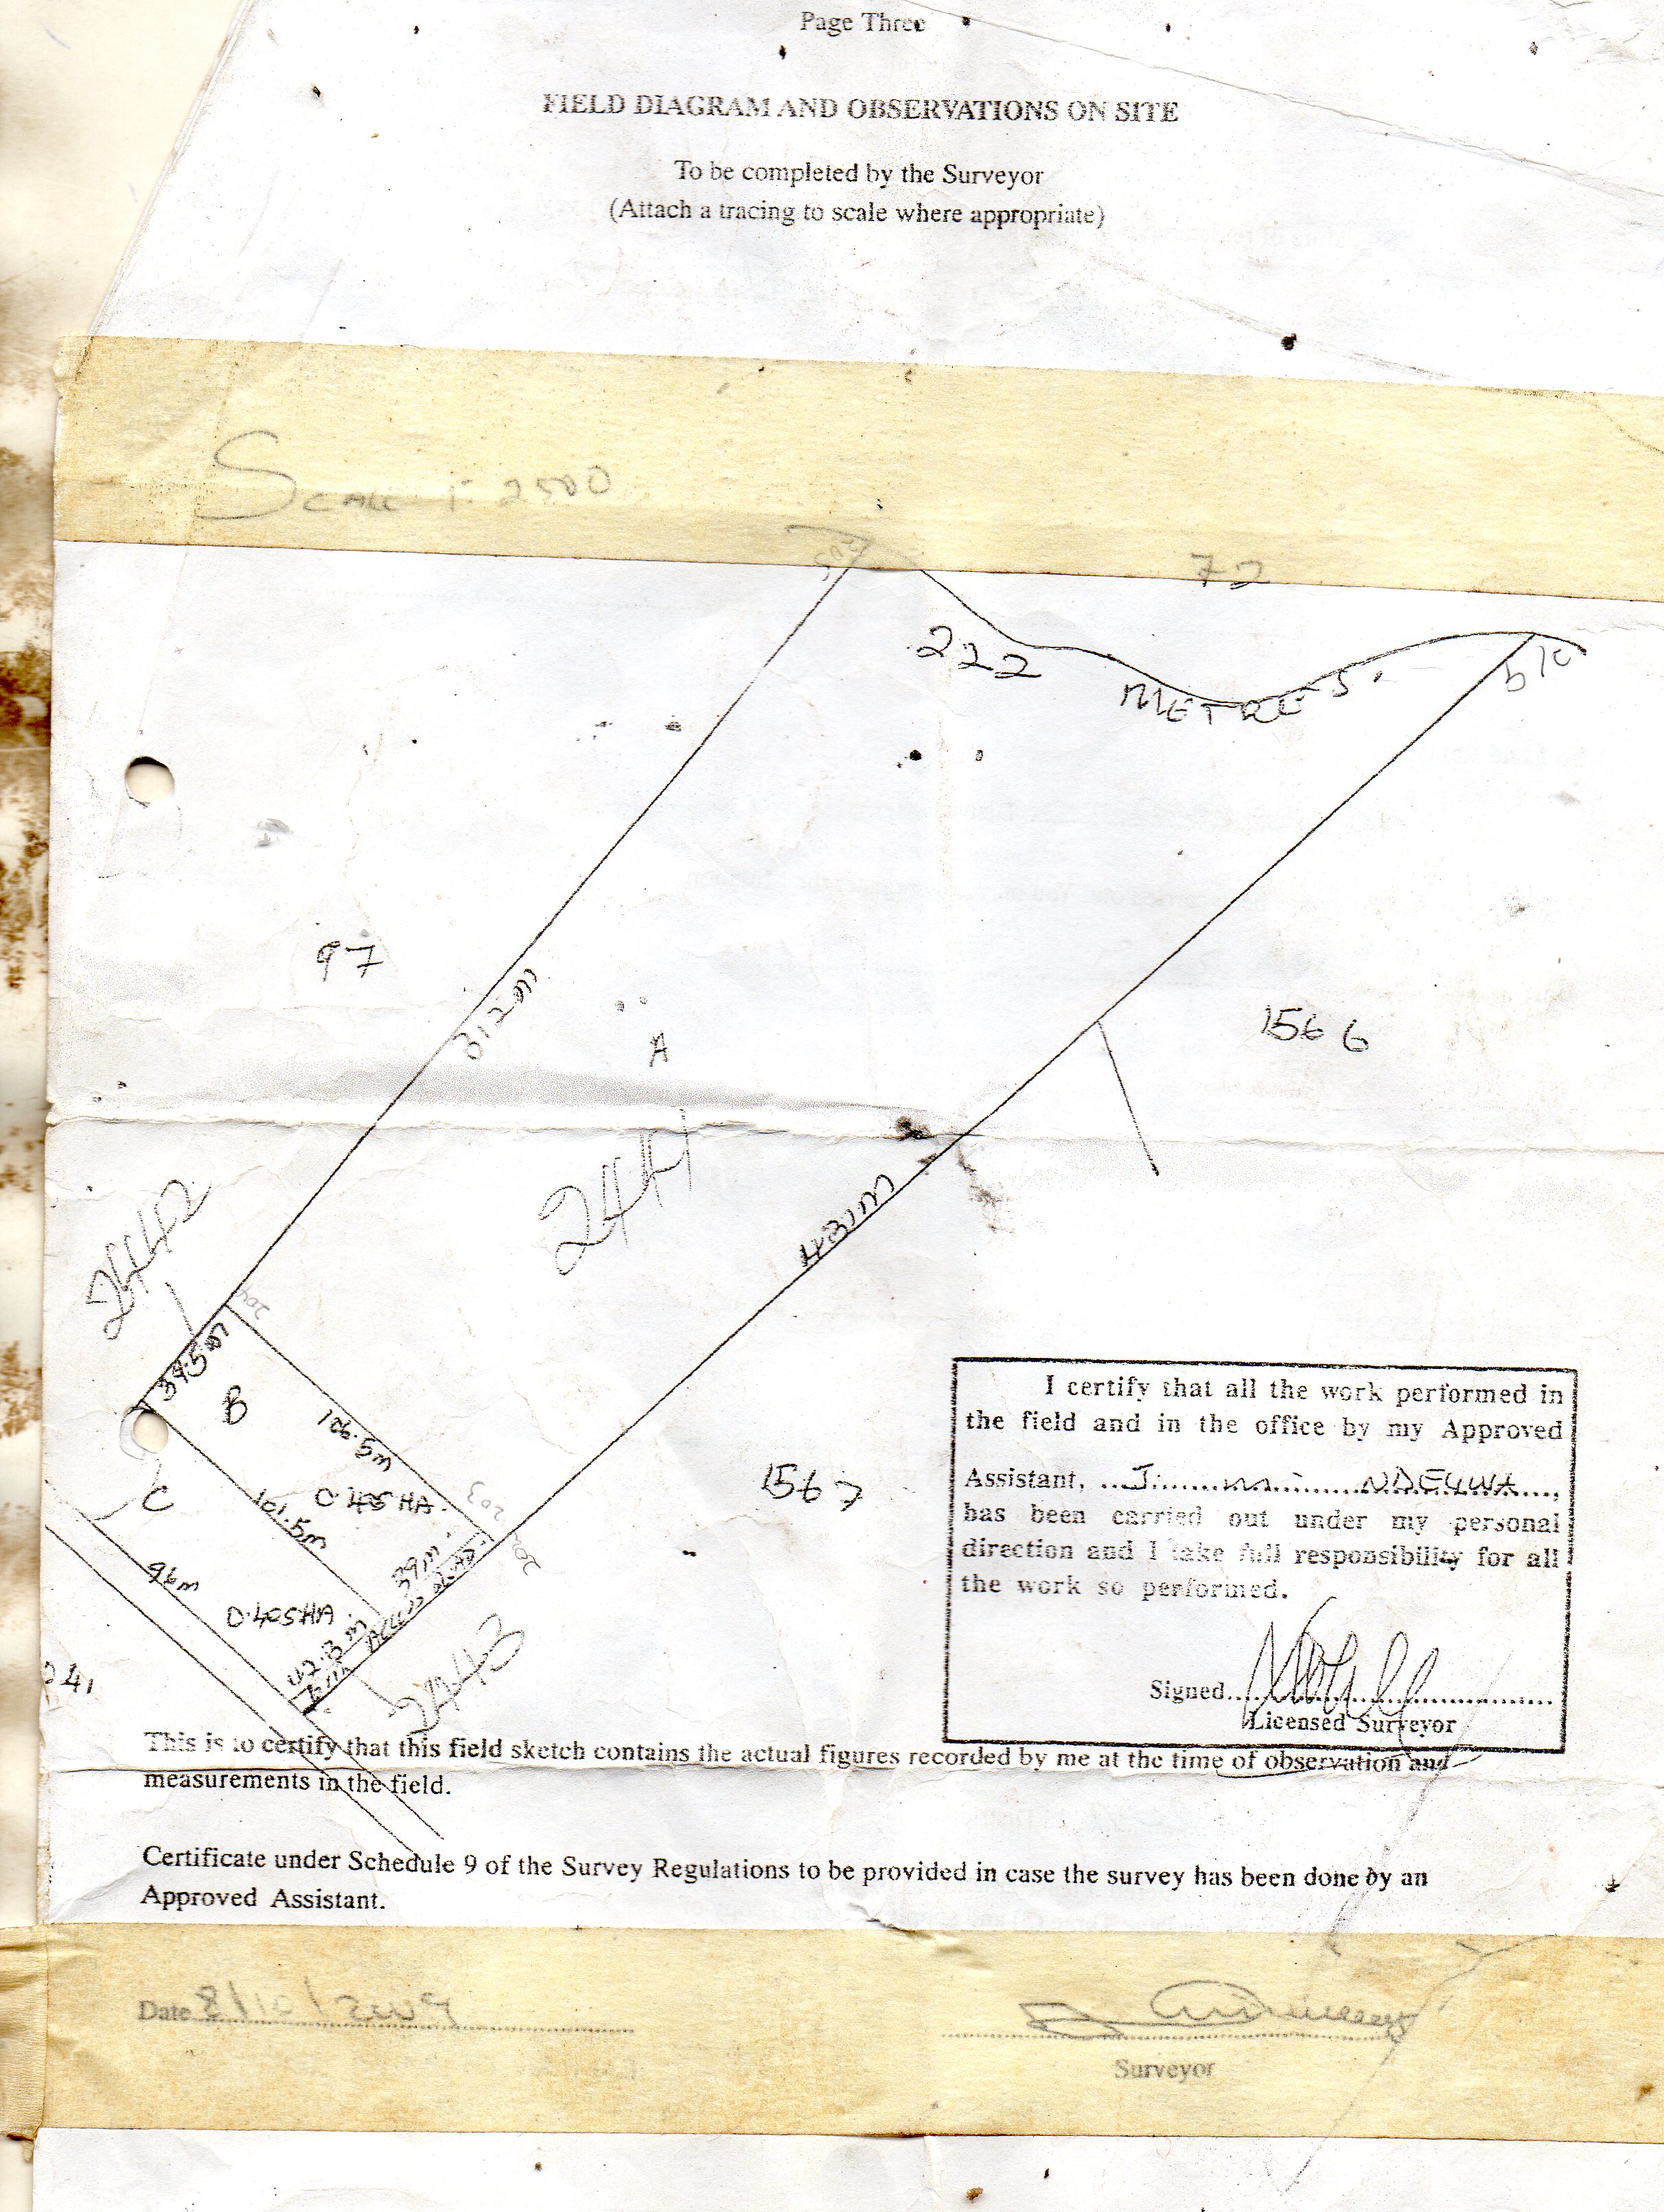 Page Three
FIELD DIAGRAM AND OBSERVATIONS ON SITE
To be completed by the Surveyor
(Attach a tracing to scale where appropriate)
SCALE 1:2500
205
72
222
METRES.
97
312m
A
1566
2442
2441
431m
204
39.5m
B
106.5m
C
101.5m
0.405 HA.
203
202
1567
39m.
96m
0.405HA
42.8m
6m
2443
241
I certify that all the work performed in
the field and in the office by my Approved
Assistant, ..J...........m...i......NDEGWA....,
has been carried out under my personal
direction and I take full responsibility for all
the work so performed.
Signed..........................
Licensed Surveyor
This is to certify that this field sketch contains the actual figures recorded by me at the time of observation and
measurements in the field.
Certificate under Schedule 9 of the Survey Regulations to be provided in case the survey has been done by an
Approved Assistant.
Date 8/10/2009
Surveyor